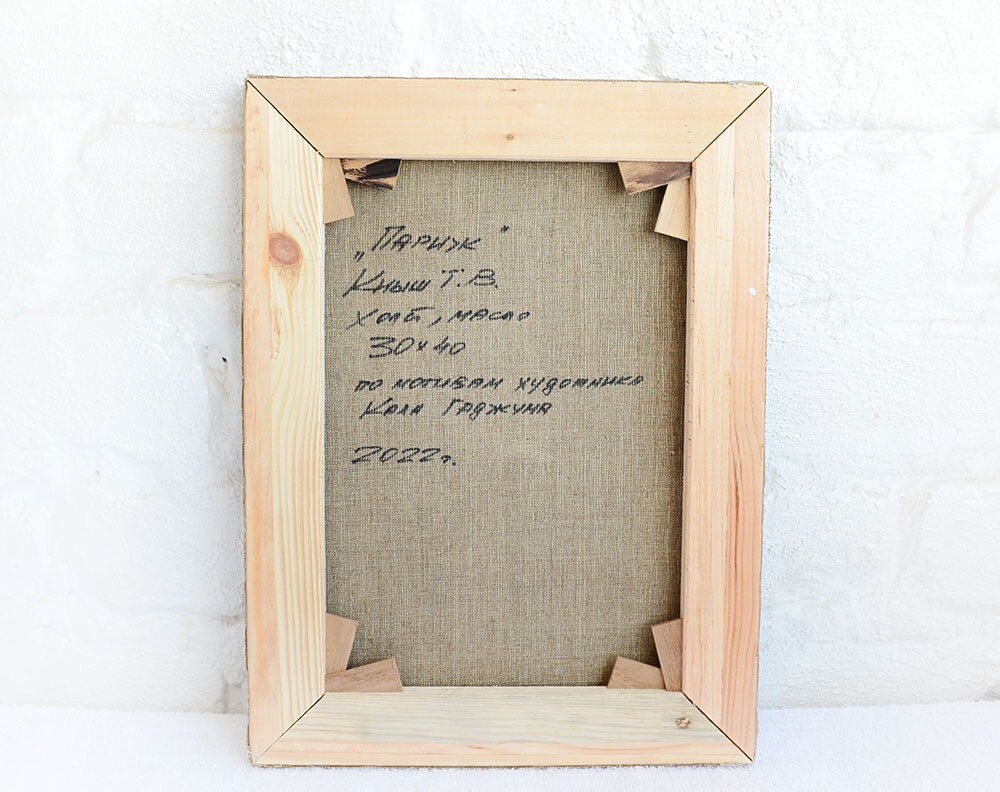 „Париж"
Кныш Т.В.
Холст, масло
30х40
по мотивам художника
Кала Гаджума
2022г.